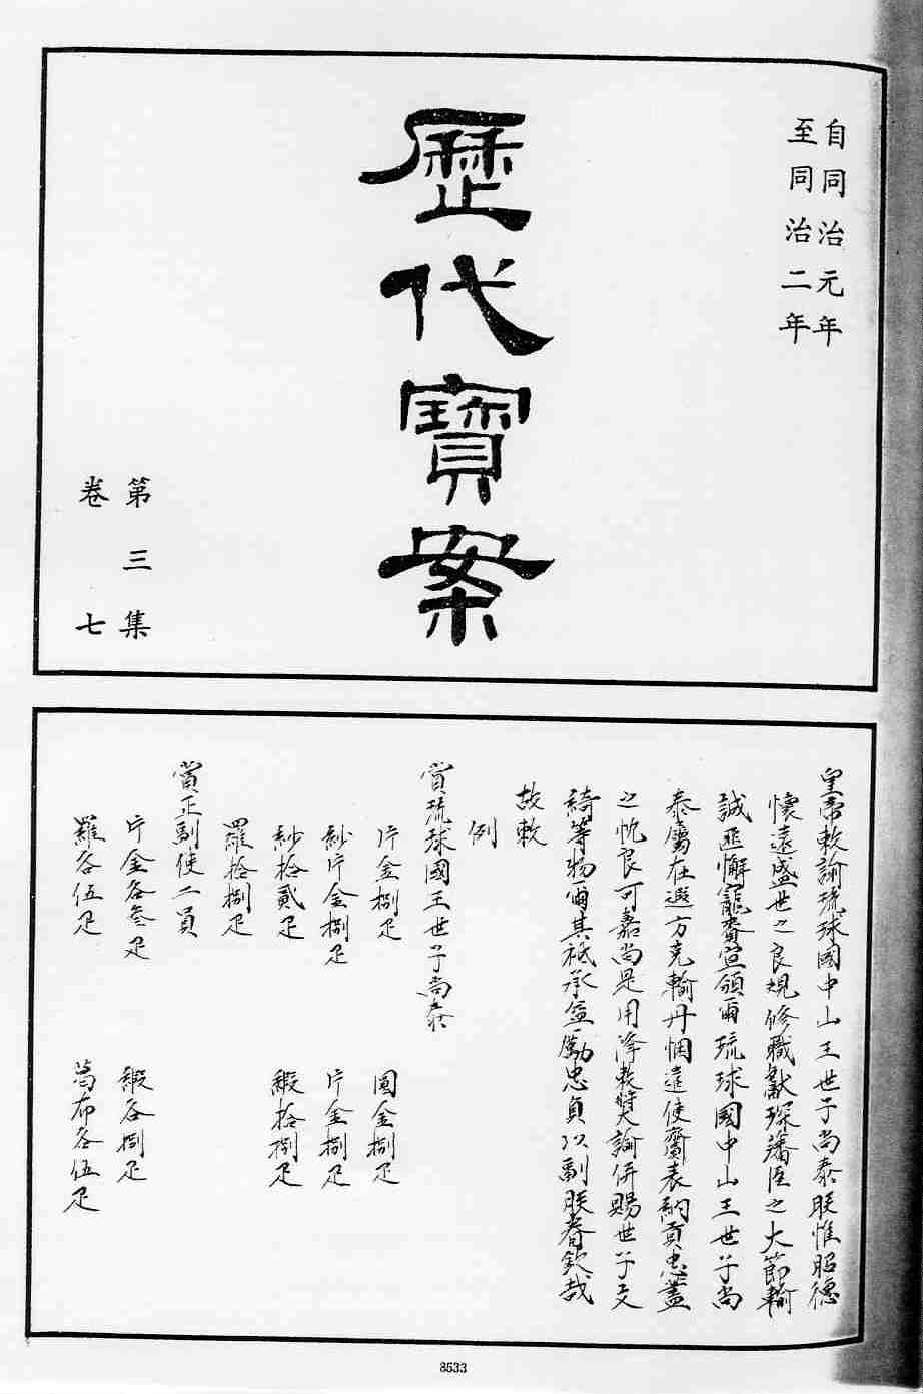 自同治元年
至同治二年
歷代寶案
第三集
卷七
皇帝敕諭琉球國中山王世子尚泰朕惟昭德
懷遠盛世之良規修職獻琛藩臣之大節輸
誠匪懈寵賚宣頒爾琉球國中山王世子尚
泰屬在遐方克輸丹悃遣使齎表納貢忠藎
之忱良可嘉尚是用降敕獎諭併賜世子文
綺等物爾其祗承益勵忠貞以副朕眷欽哉
故敕
例
賞琉球國王世子尚泰
片金捌疋 國金捌疋
紗片金捌疋 片金捌疋
紗拾貳疋 緞拾捌疋
羅拾捌疋
賞正副使二員
片金各叁疋 緞各捌疋
羅各伍疋 葛布各伍疋
8533